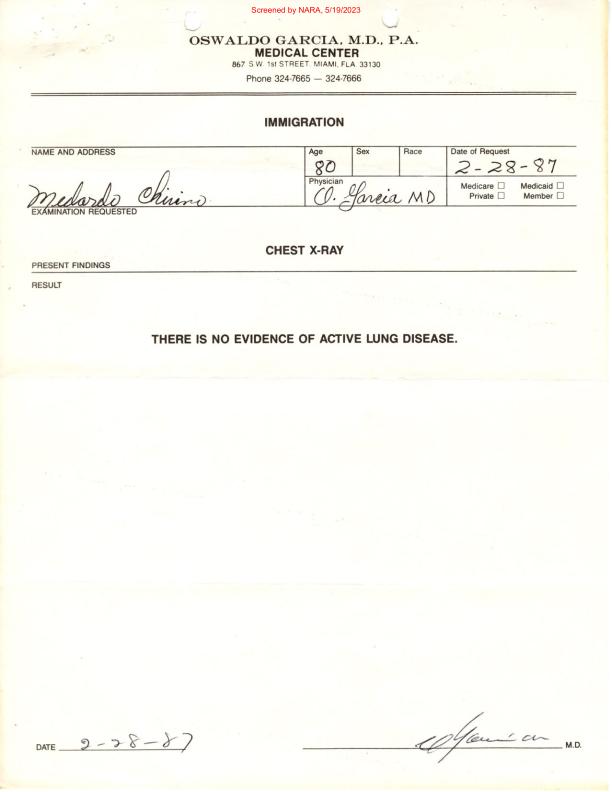 Screened by NARA, 5/19/2023
OSWALDO GARCIA, M.D., P.A.
MEDICAL CENTER
867 S.W. 1st STREET, MIAMI, FLA. 33130
Phone 324-7665 — 324-7666
IMMIGRATION
NAME AND ADDRESS Age Sex Race Date of Request
80 2-28-87
Physician Medicare ☐ Medicaid ☐
Medardo Chirino O. Garcia MD Private ☐ Member ☐
EXAMINATION REQUESTED
CHEST X-RAY
PRESENT FINDINGS
RESULT
THERE IS NO EVIDENCE OF ACTIVE LUNG DISEASE.
DATE 2-28-87 M.D.